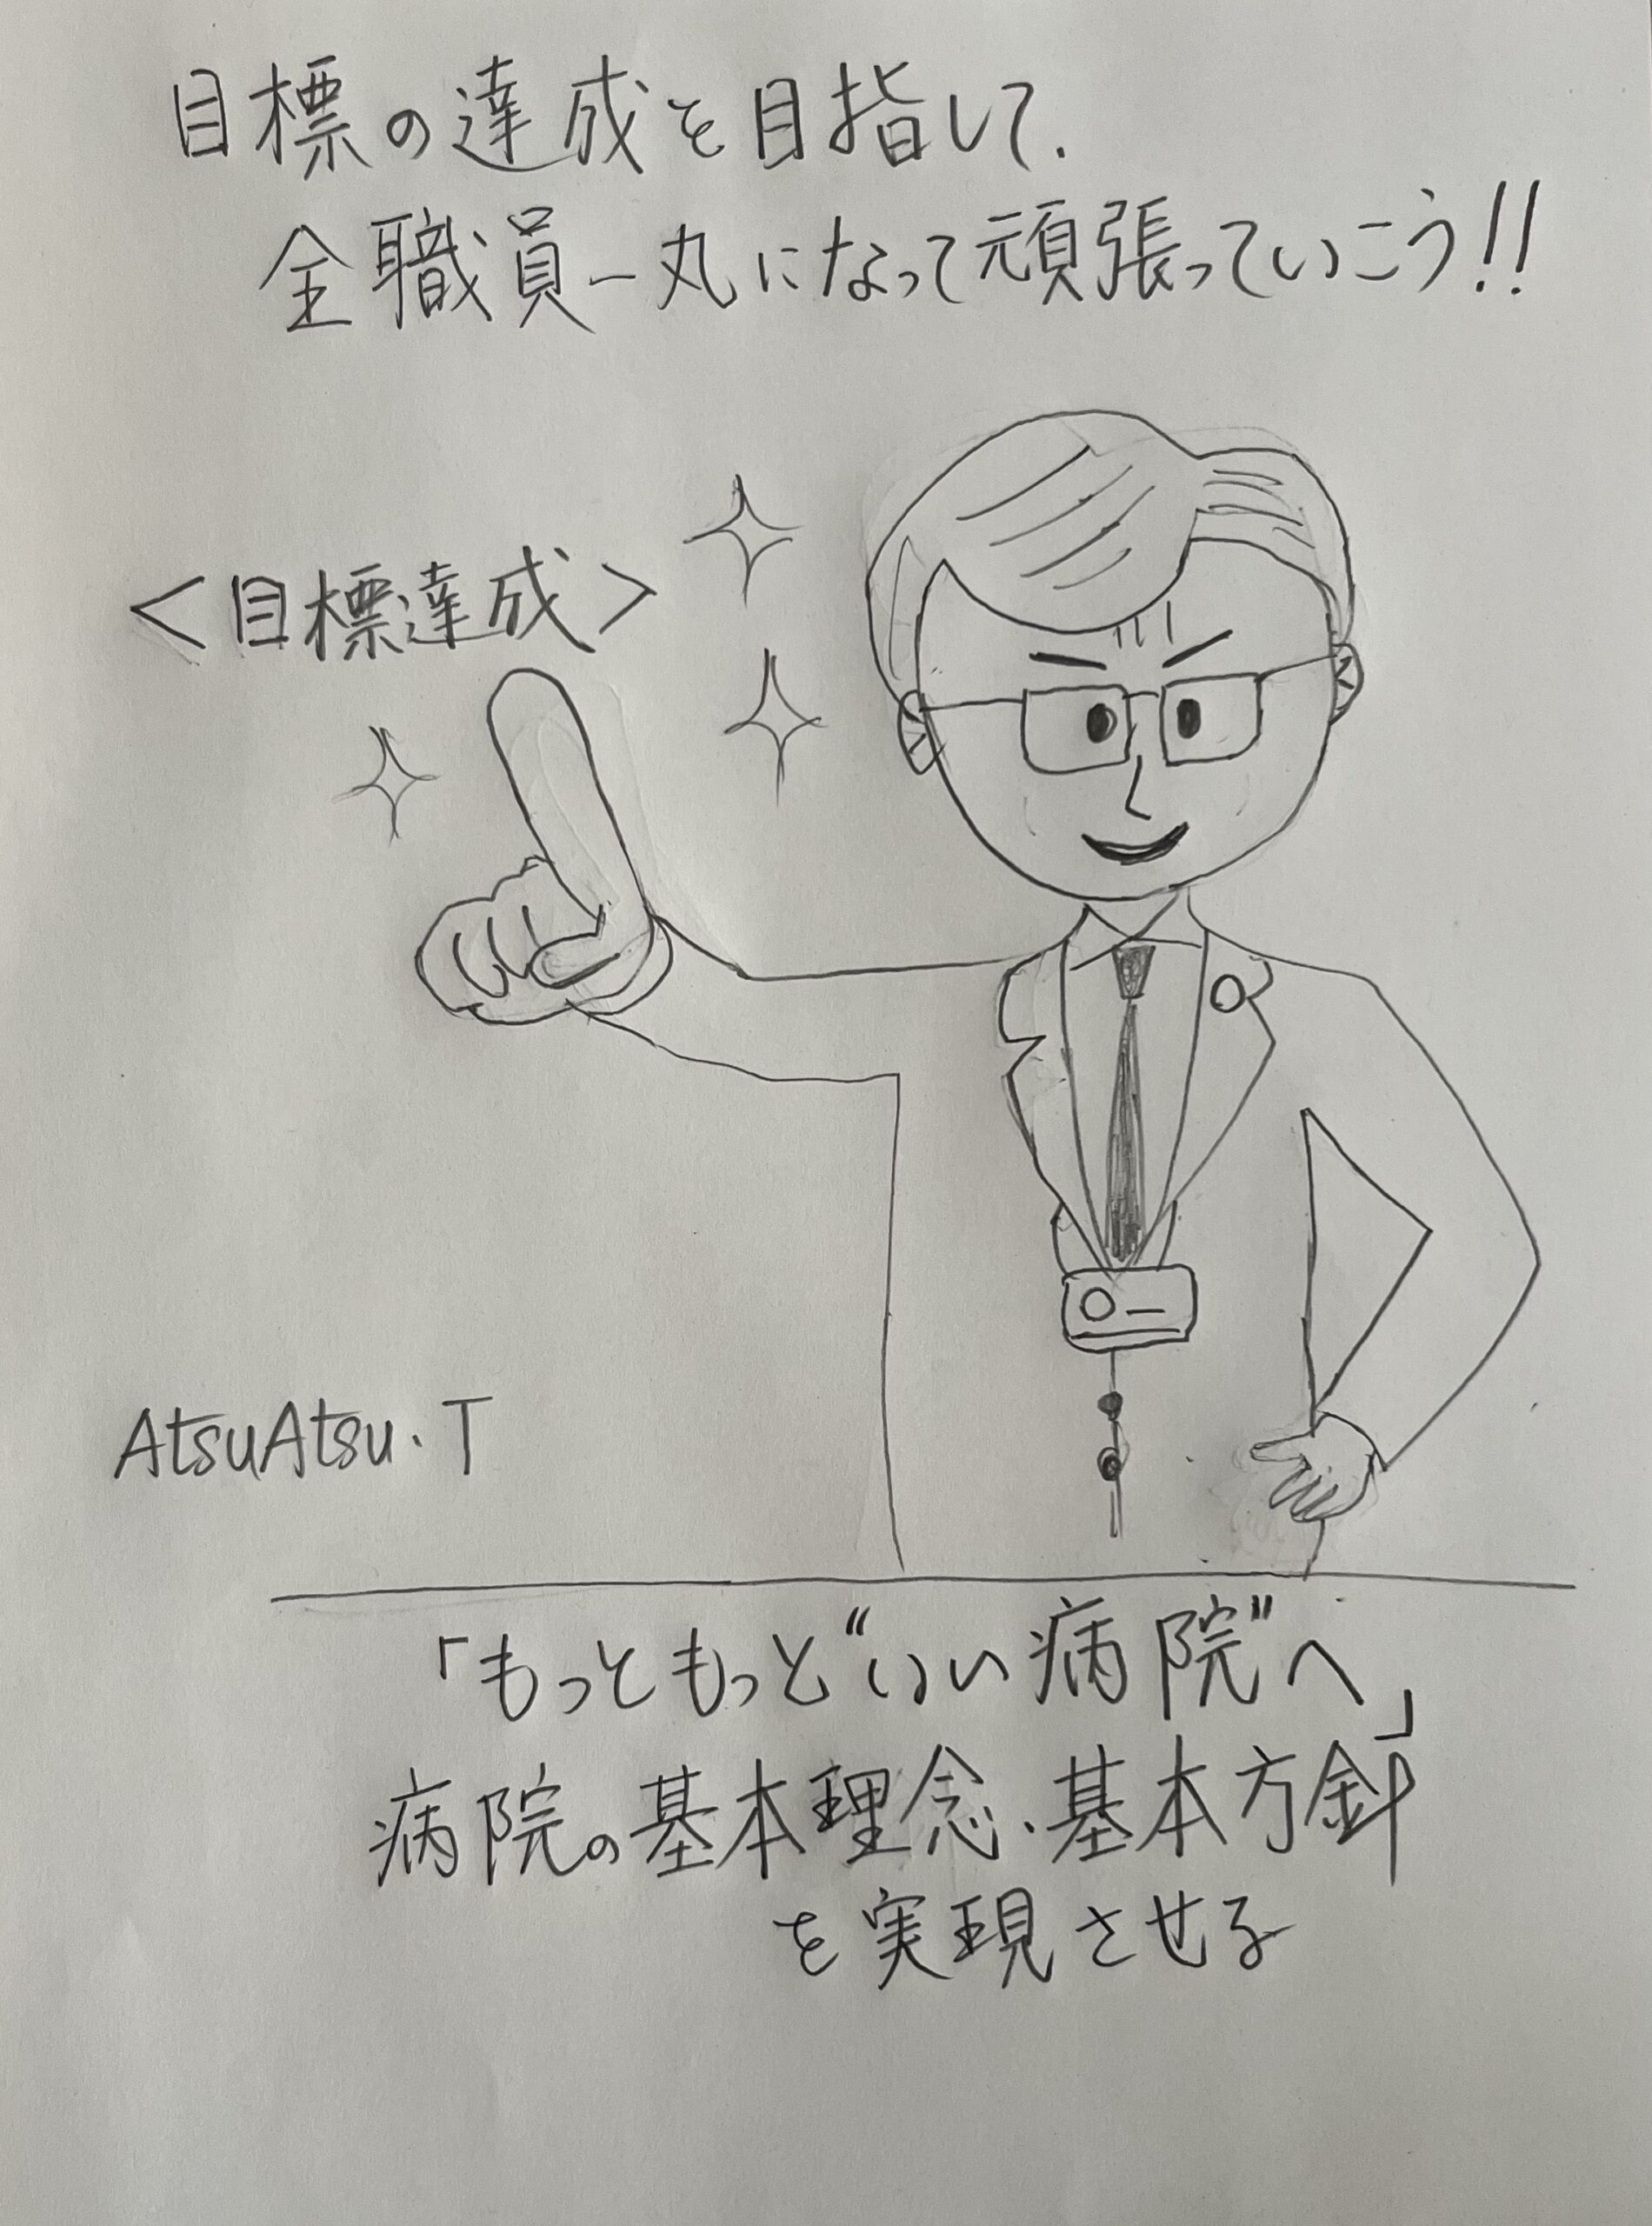 目標の達成を目指して、
全職員一丸になって頑張っていこう!!
＜目標達成＞
AtsuAtsu.T
「もっともっと“いい病院”へ」
病院の基本理念、基本方針
を実現させる